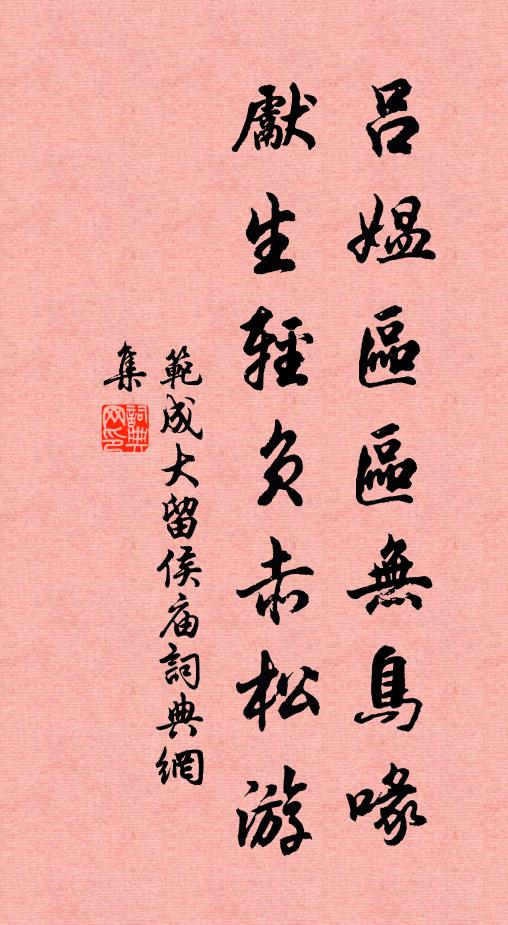 呂媼區區無鳥喙
獻生輕負赤松游
範成大留侯庙詞典網
集
詞典网印